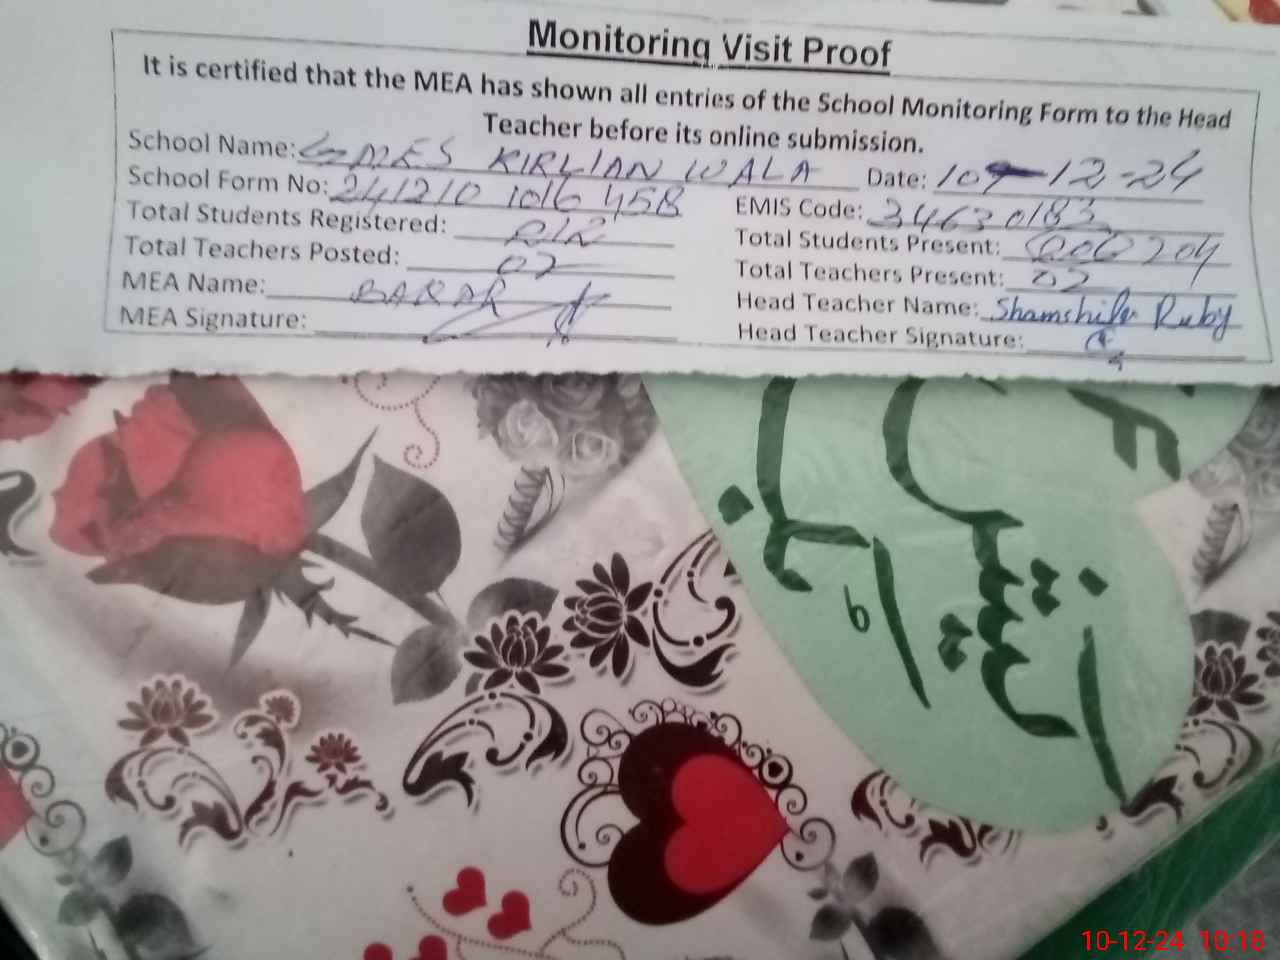 Monitoring Visit Proof
It is certified that the MEA has shown all entries of the School Monitoring Form to the Head
Teacher before its online submission.
School Name: GMES KIRLIAN WALA Date: 10-12-24
School Form No: 241210 1016 458 EMIS Code: 34630183
Total Students Registered: 212 Total Students Present: 204
Total Teachers Posted: 02 Total Teachers Present: 02
MEA Name: BABAR Head Teacher Name: Ruby
MEA Signature: Head Teacher Signature:
10-12-24 10:18